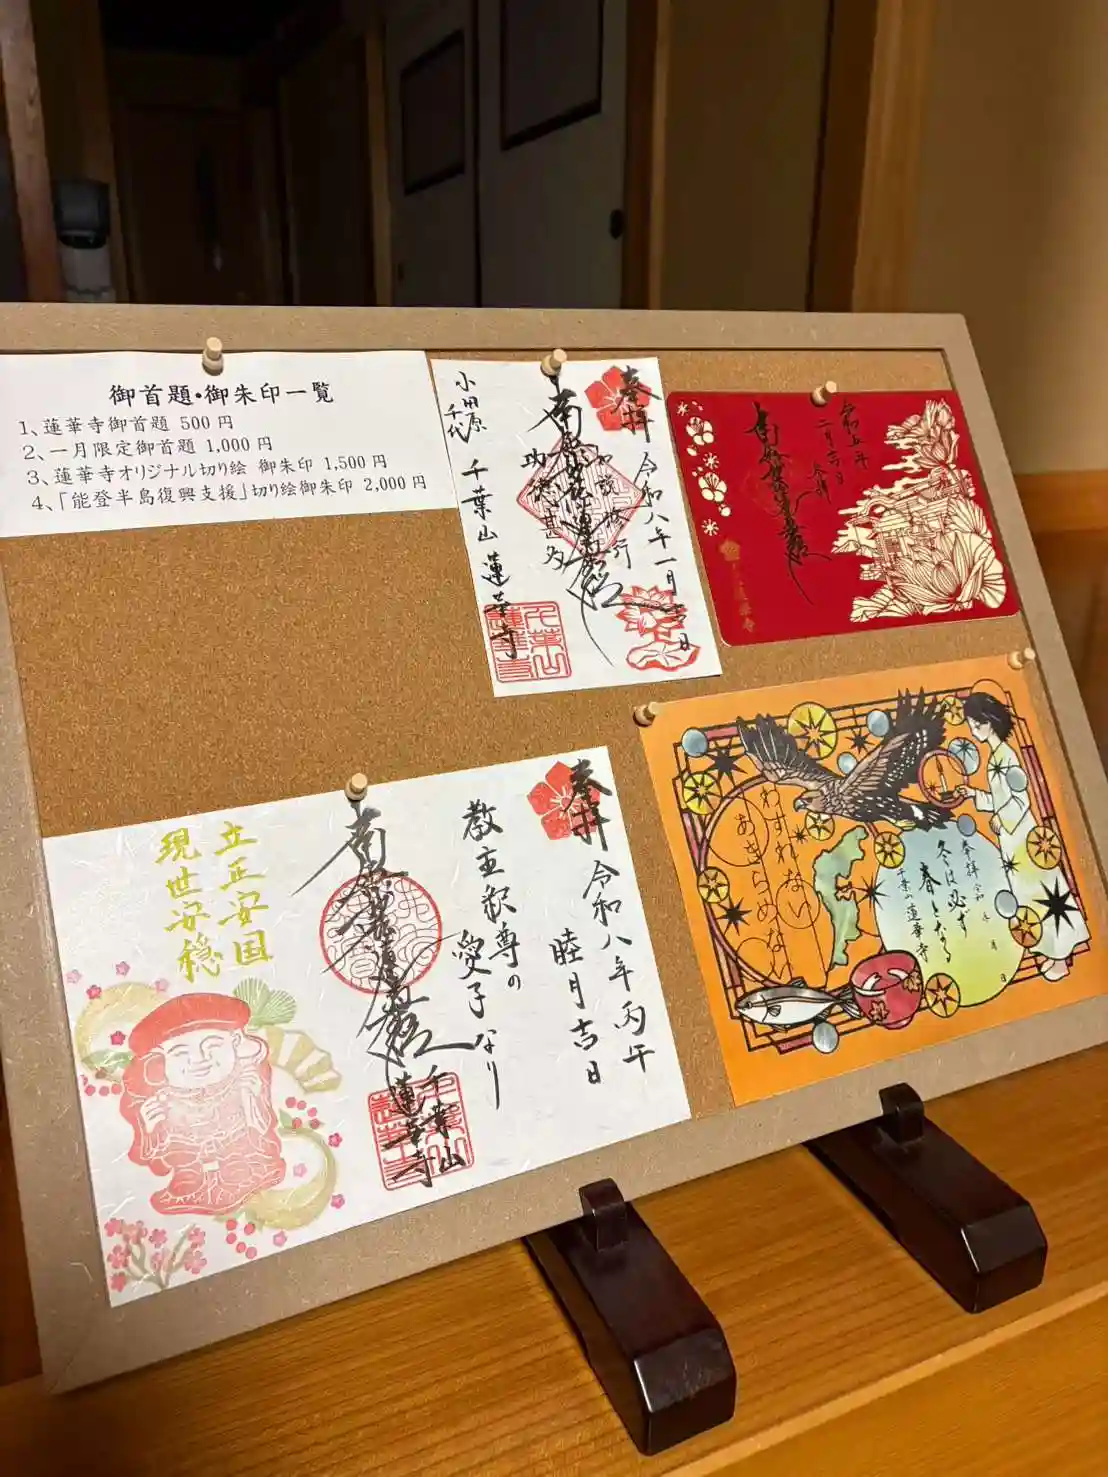 御首題・御朱印一覧
1、蓮華寺御首題 500円
2、一月限定御首題 1,000円
3、蓮華寺オリジナル切り絵 御朱印 1,500円
4、「能登半島復興支援」切り絵御朱印 2,000円
奉拝
令和八年一月吉日
如説修行
南無妙法蓮華経
功徳甚多
小田原
千代
千葉山 蓮華寺
千葉山
蓮華寺
令和五年
二月吉日
奉拝
南無妙法蓮華経
奉拝
令和八年丙午
睦月吉日
教主釈尊の
愛子なり
南無妙法蓮華経
千葉山
蓮華寺
立正安国
現世安穏
わすれない
あきらめない
奉拝 令和 年 月 日
冬は必ず
春となる
千葉山 蓮華寺